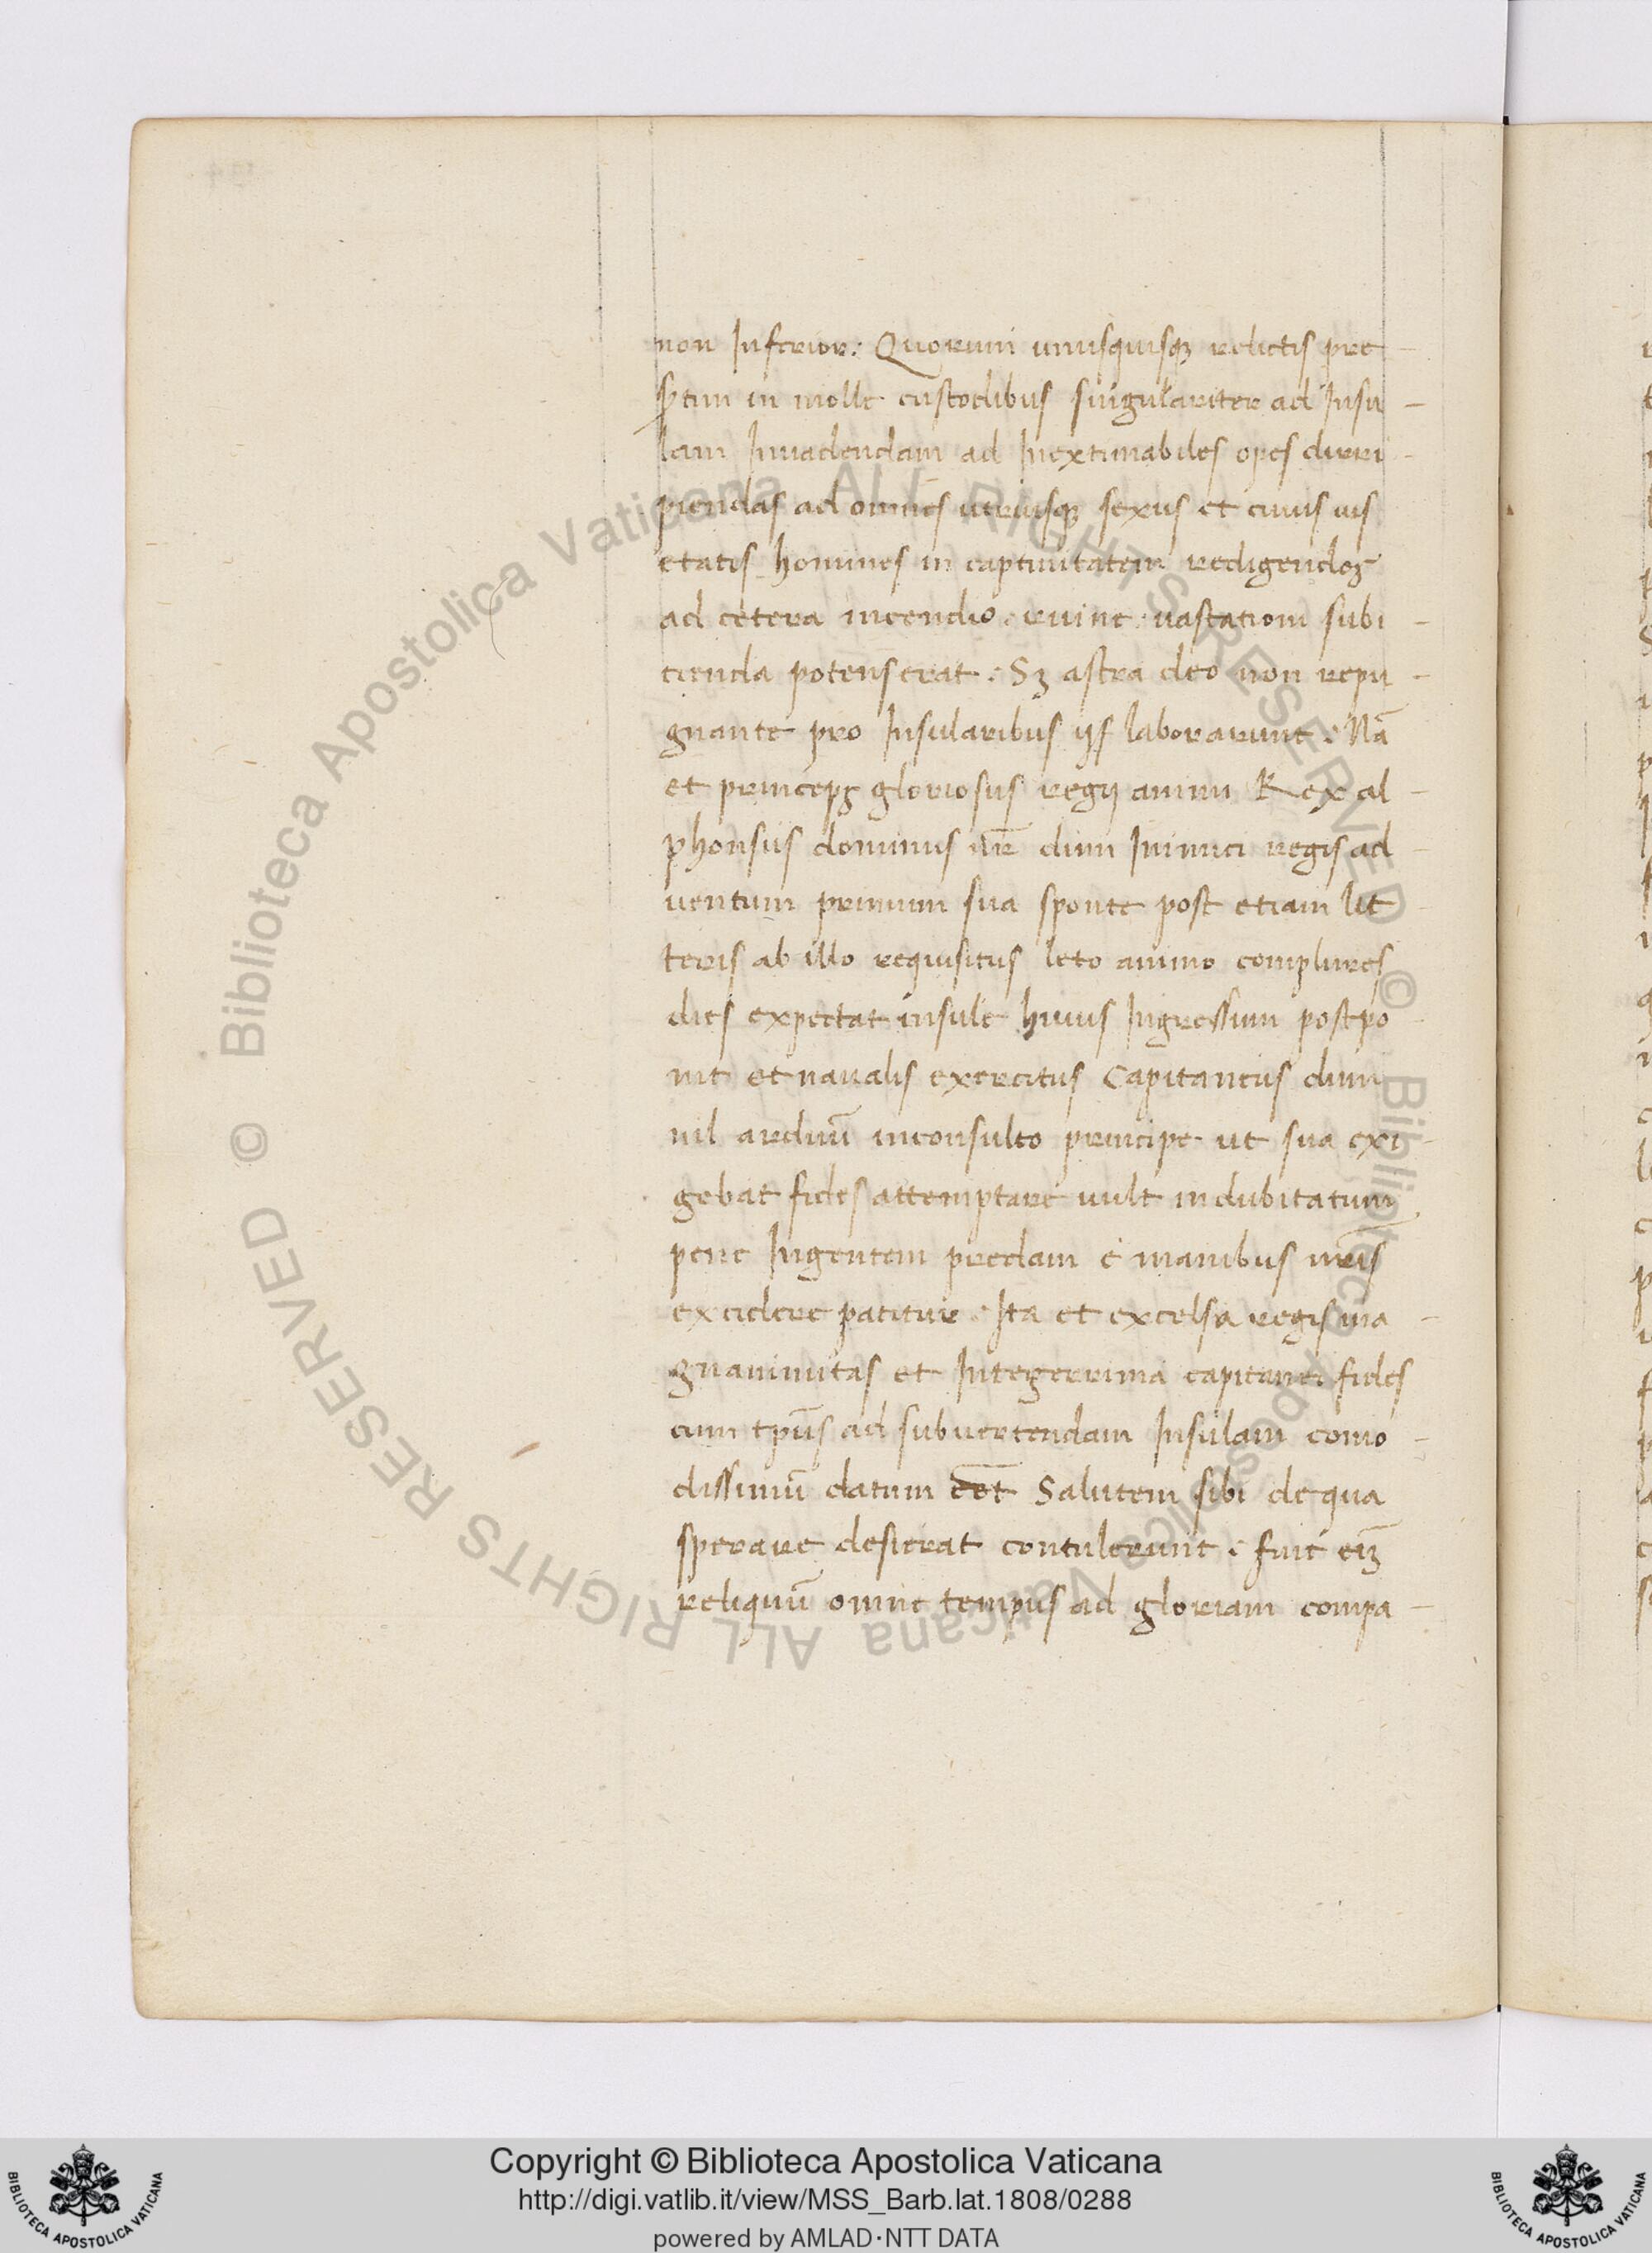 non Inferior: Quorum unusquisqꝫ relictis pre
sertim in molle custodibus singulariter ad Insu-
lam Inuadendam ad Inextimabiles opes dirri-
piendas ad omnes utriusqꝫ sexus et cuius uis
etatis homines in captiuitatem redigendos
ad cetera incendio ruine uastationi subi-
cienda potens erat. Sꝫ astra deo non repu-
gnante pro Insularibus ijs laborarunt. Nā
et princeps gloriosus regij animi Rex al-
phonsus dominus nr̄ dum Inimici regis ad-
uentum primum sua sponte post etiam lit-
teris ab illo requisitus leto animo complures
dies expectat insule huius Ingressum postpo
nit et naualis exercitus Capitaneus dum
nil arduū inconsulto principe ut sua exi-
gebat fides attemptare uult indubitatum
pene Ingentem predam è manibus nr̄is
excidere patitur. Ita et excelsa regis ma-
gnanimitas et Integerrima capitanei fides
cum tpūs ad subuertendam Insulam como-
dissimū datum eēt Salutem sibi de qua
sperare desierat contulerunt. fuit eiꝫ
reliquū omne tempus ad gloriam compa-
© Biblioteca Apostolica Vaticana ALL RIGHTS RESERVED © Biblioteca Apostolica Vaticana ALL RIGHTS RESERVED
Copyright © Biblioteca Apostolica Vaticana
http://digi.vatlib.it/view/MSS_Barb.lat.1808/0288
powered by AMLAD·NTT DATA
BIBLIOTECA APOSTOLICA VATICANA
BIBLIOTECA APOSTOLICA VATICANA